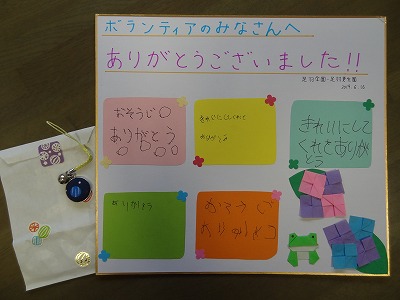 ボランティアのみなさんへ
ありがとうございました!!
足羽学園・足羽更生園
2019.6.10
おそうじ○
ありがとう
○○○
きれいにしてくれて
ありがとう
きれいにして
くれてありが
とう
ありがとう
おそうじ
ありがとう